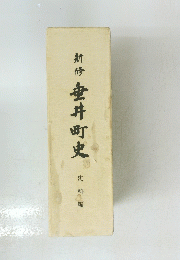 新修
垂井町史
史料編